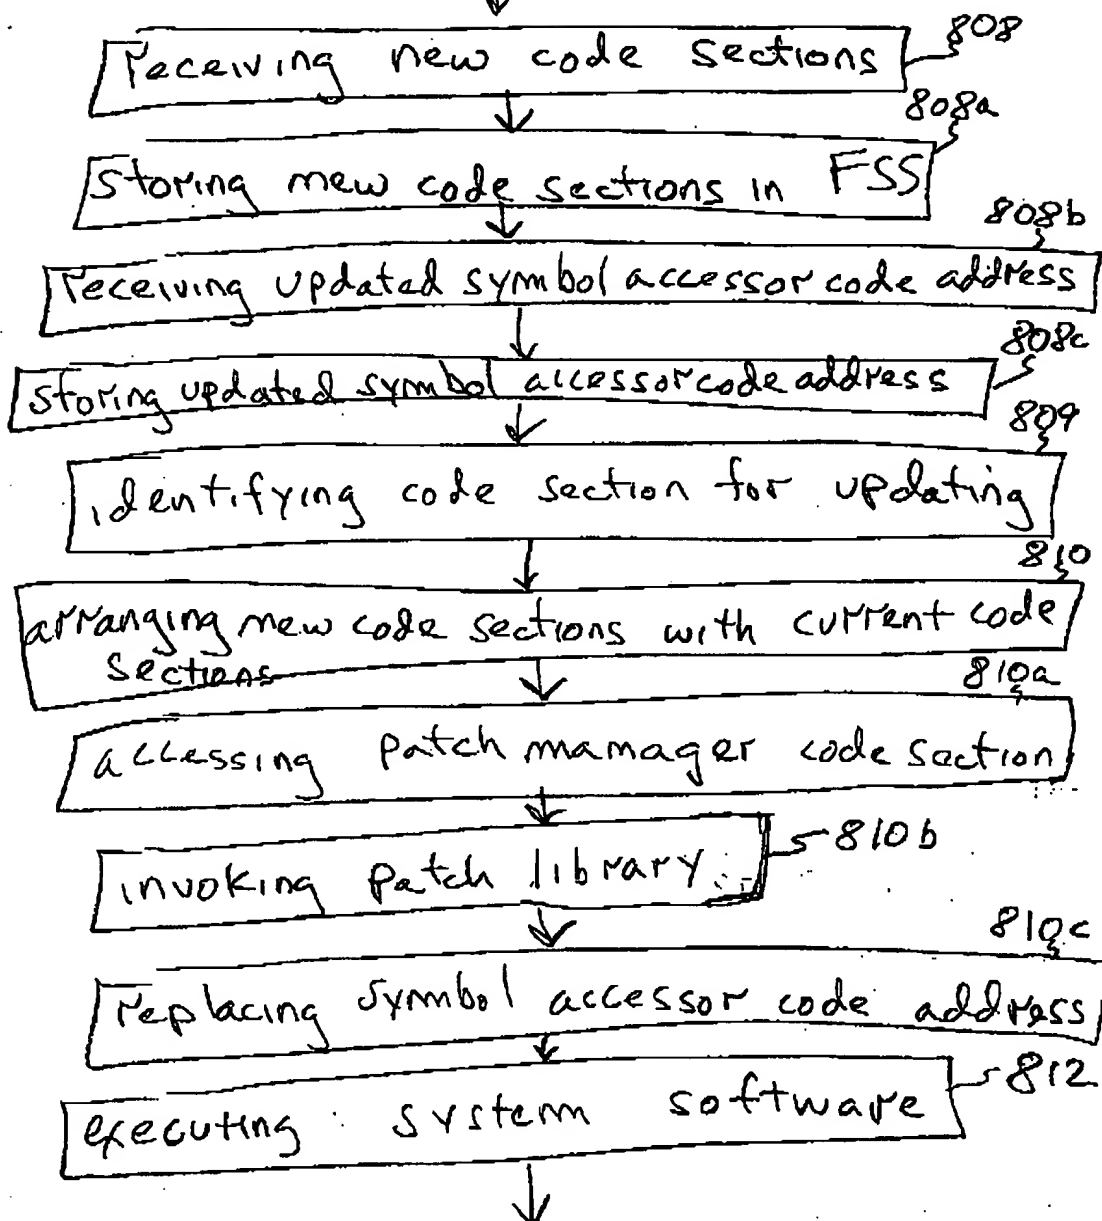 808
receiving new code sections
808a
storing new code sections in FSS
808b
receiving updated symbol accessor code address
808c
storing updated symbol accessor code address
809
identifying code section for updating
810
arranging new code sections with current code
sections
810a
accessing patch manager code section
invoking patch library
810b
810c
replacing symbol accessor code address
812
executing system software